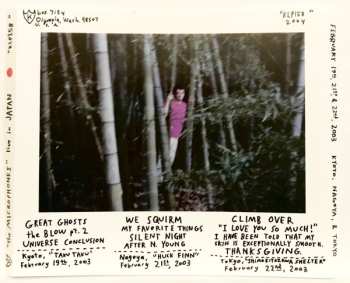 box 7154
Olympia, Wash. 98507
U.S.A.
"ELP138"
2004
FEBRUARY 19th, 21st, & 22nd, 2003 KYOTO, NAGOYA, & TOKYO
"ELP138"
"the MICROPHONES" live in JAPAN
GREAT GHOSTS
the BLOW pt. 2
UNIVERSE CONCLUSION
Kyoto, "TAKU TAKU"
February 19th, 2003
WE SQUIRM
MY FAVORITE THINGS
SILENT NIGHT
AFTER N. YOUNG
Nagoya, "HUCK FINN"
February 21st, 2003
CLIMB OVER
"I LOVE YOU SO MUCH!"
I HAVE BEEN TOLD THAT MY
SKIN IS EXCEPTIONALLY SMOOTH.
THANKSGIVING.
TOKYO,
February 22nd, 2003